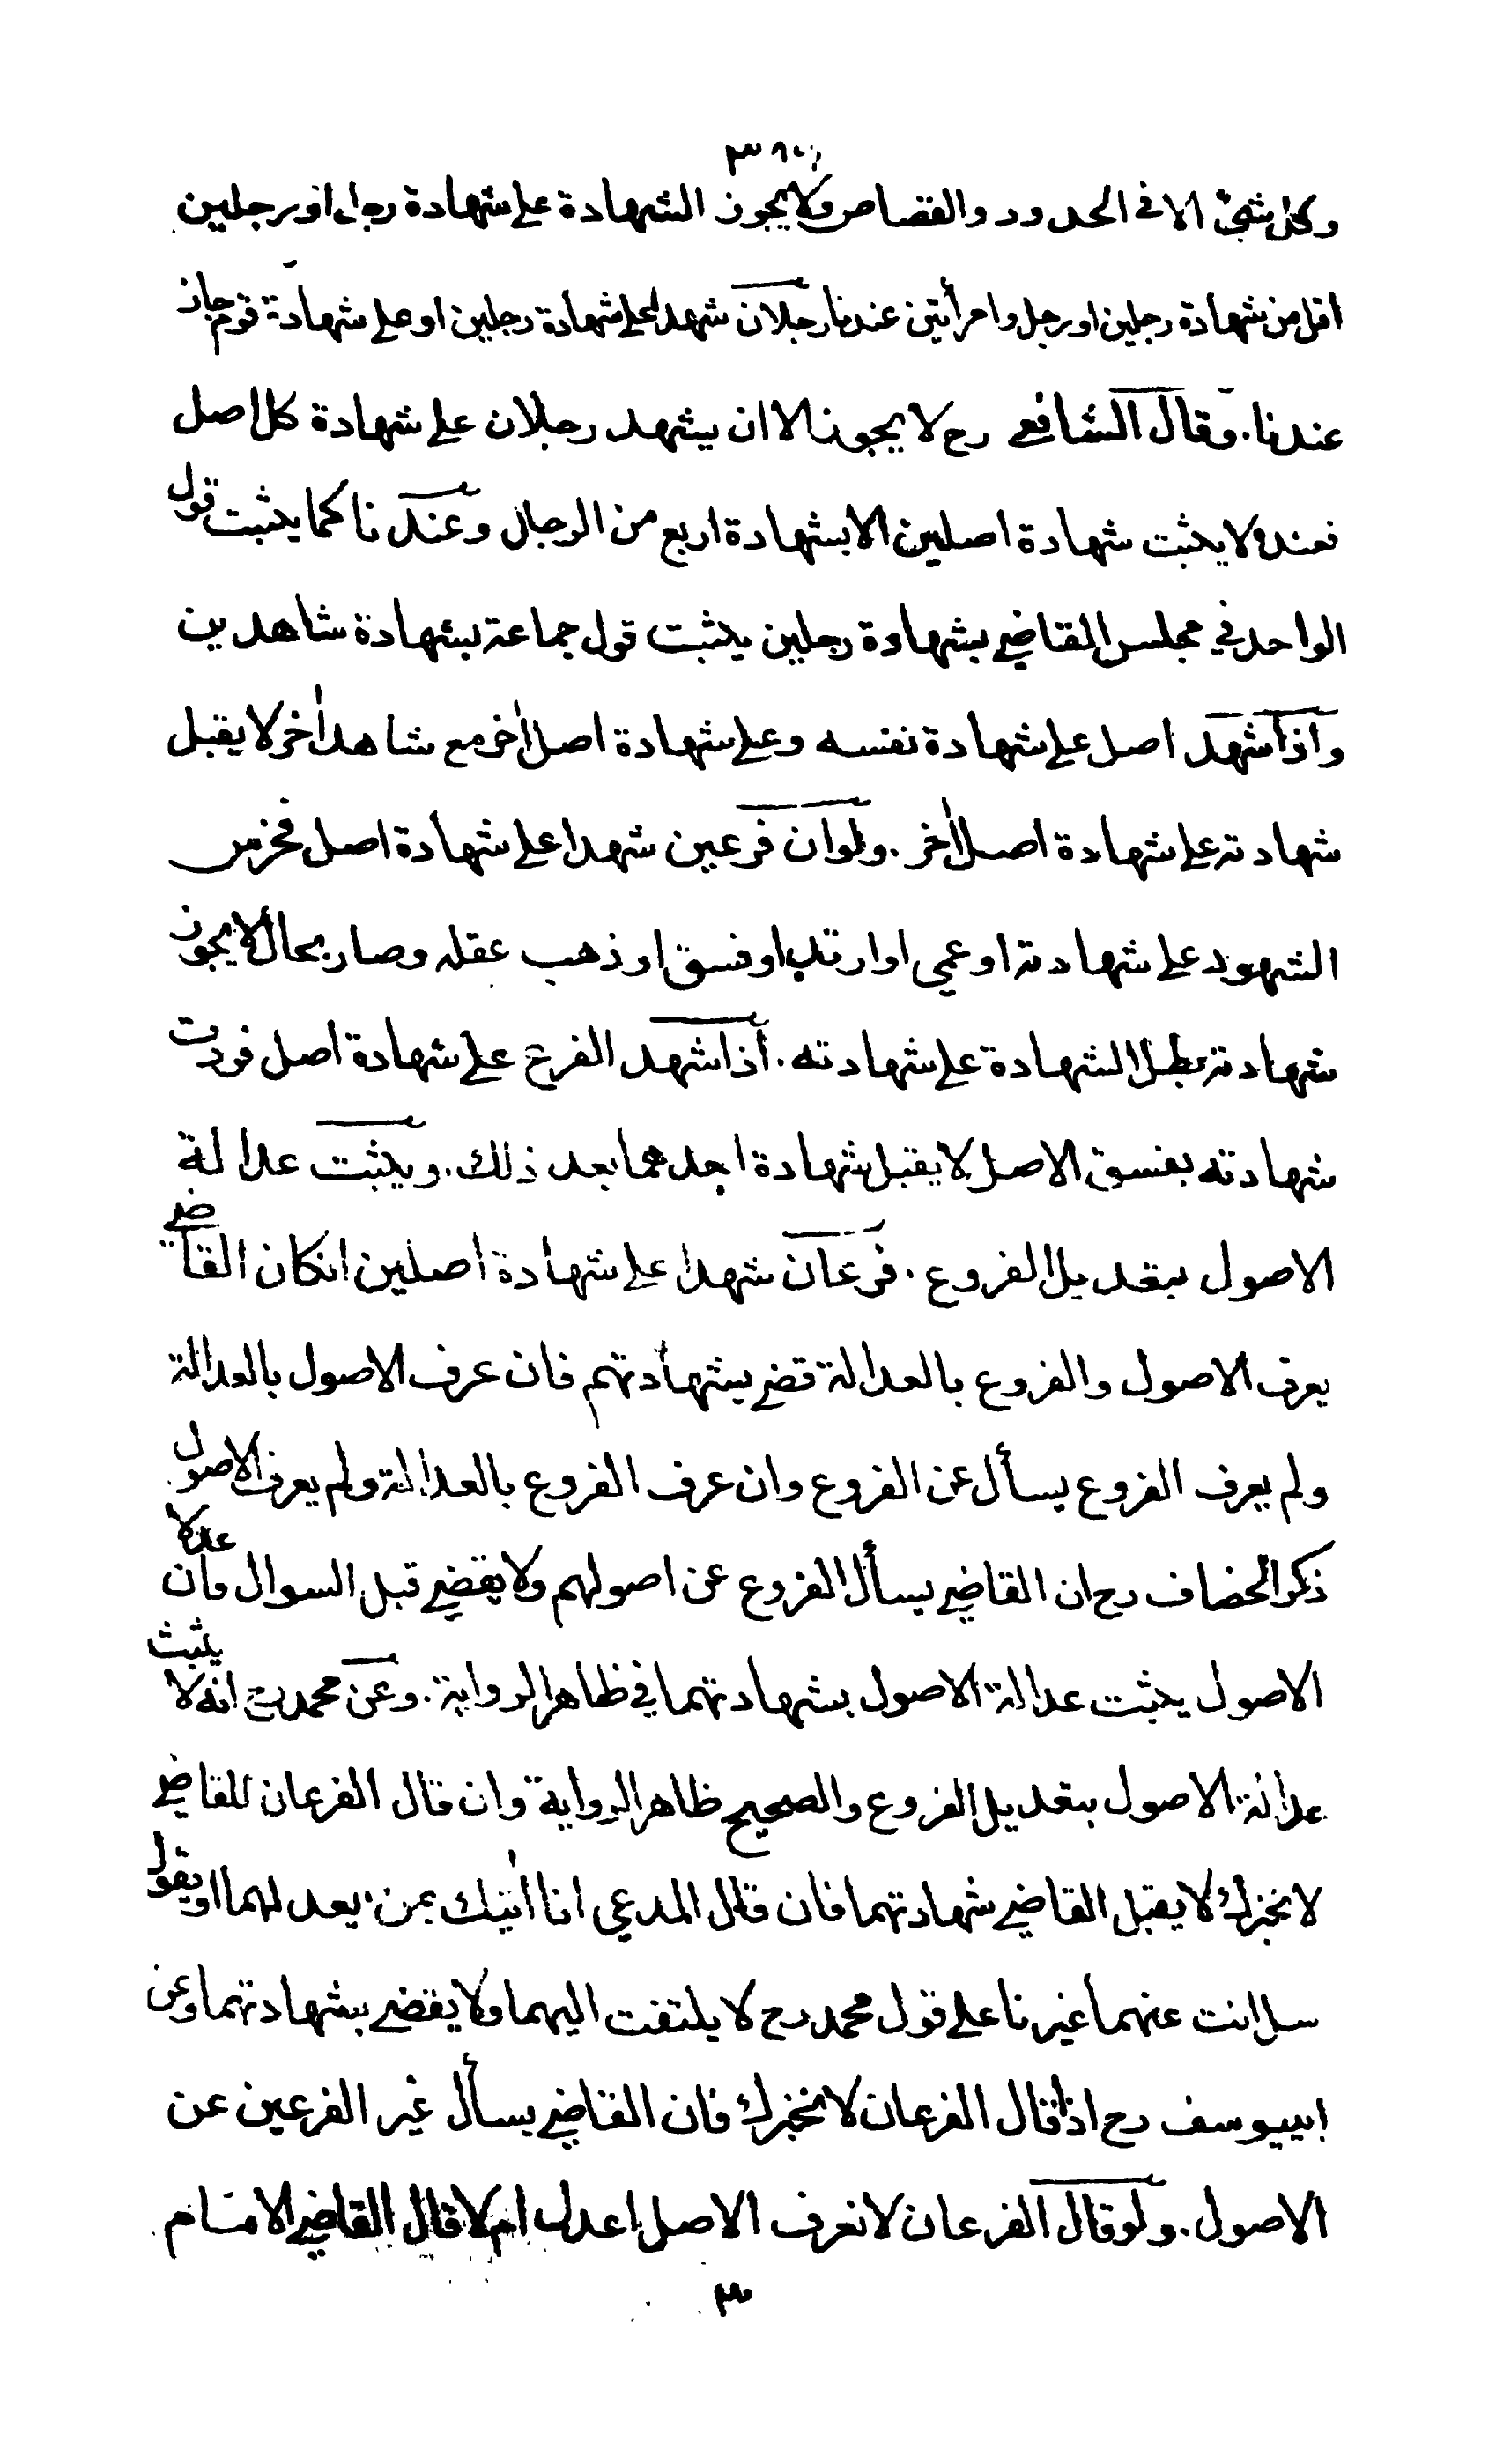 وكل شئ الا في الحدود والقصاص ولا يجوز الشهادة على شهادة رجل او رجلين
اقل من شهادة رجلين او رجل وامرأتين عندنا رجلان شهدا على شهادة رجلين او على شهادة قوم جاز
عندنا. وقال الشافعي رح لا يجوز الا ان يشهد رجلان على شهادة كل اصل
فعنده لا يثبت شهادة اصلين الا بشهادة اربع من الرجال وعندنا كما يثبت قول
الواحد في مجلس القاضي بشهادة رجلين يثبت قول جماعة بشهادة شاهدين
واذا شهد اصل على شهادة نفسه وعلى شهادة اصل اٰخر مع شاهد اٰخر لا يقبل
شهادته على شهادة اصل اٰخر. ولو ان فرعين شهدا على شهادة اصل فخرس
الشهود على شهادته او عمي او ارتد او فسق او ذهب عقله وصار بحال لا يجوز
شهادته بطل الشهادة على شهادته. اذا شهد الفرع على شهادة اصل فردت
شهادته بفسق الاصل لا يقبل شهادة احدهما بعد ذلك. ويثبت عدالة
الاصول بتعديل الفروع. فرعان شهدا على شهادة اصلين انكان القاضي
يعرف الاصول والفروع بالعدالة قضى بشهادتهم فان عرف الاصول بالعدالة
ولم يعرف الفروع يسأل عن الفروع وان عرف الفروع بالعدالة ولم يعرف الاصول
ذكر الخصاف رح ان القاضي يسأل الفروع عن اصولهم ولا يقضي قبل السوال فان عدلا
الاصول يثبت عدالة الاصول بشهادتهما في ظاهر الرواية. وعن محمد رح انه لا يثبت
عدالة الاصول بتعديل الفروع والصحيح ظاهر الرواية وان قال الفرعان للقاضي
لا نخبرك لا يقبل القاضي شهادتهما فان قال المدعي انا اٰتيك بمن يعدلهما او يقول
سل انت عنهما غيرنا على قول محمد رح لا يلتفت اليهما ولا يقضي بشهادتهما وعن
ابييوسف رح اذا قال الفرعان لا نخبرك فان القاضي يسأل غير الفرعين عن
الاصول. ولو قال الفرعان لا نعرف الاصل اعدل ام لا قال القاضي الامام